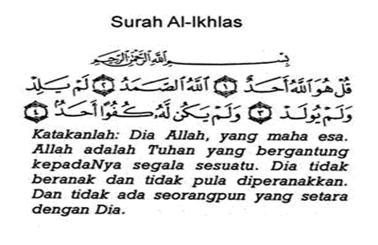 Surah Al-Ikhlas
بِسْمِ اللَّهِ الرَّحْمَنِ الرَّحِيمِ
قُلْ هُوَ اللَّهُ أَحَدٌ ۝١ اللَّهُ الصَّمَدُ ۝٢ لَمْ يَلِدْ
وَلَمْ يُولَدْ ۝٣ وَلَمْ يَكُن لَّهُ كُفُوًا أَحَدٌ ۝٤
Katakanlah: Dia Allah, yang maha esa.
Allah adalah Tuhan yang bergantung
kepadaNya segala sesuatu. Dia tidak
beranak dan tidak pula diperanakkan.
Dan tidak ada seorangpun yang setara
dengan Dia.